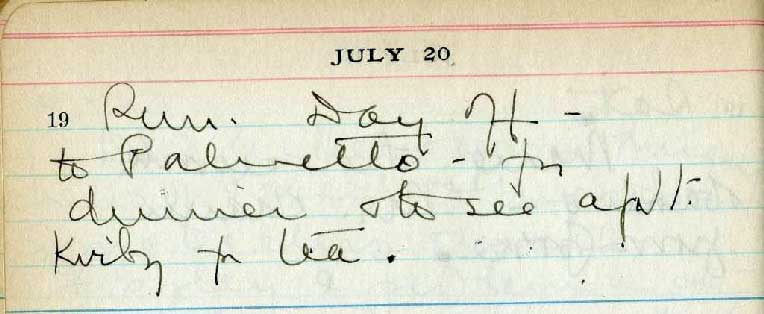 JULY 20
19 Sun. Day off -
to Palmetto - for
dinner & to see apt.
Kirby for tea.